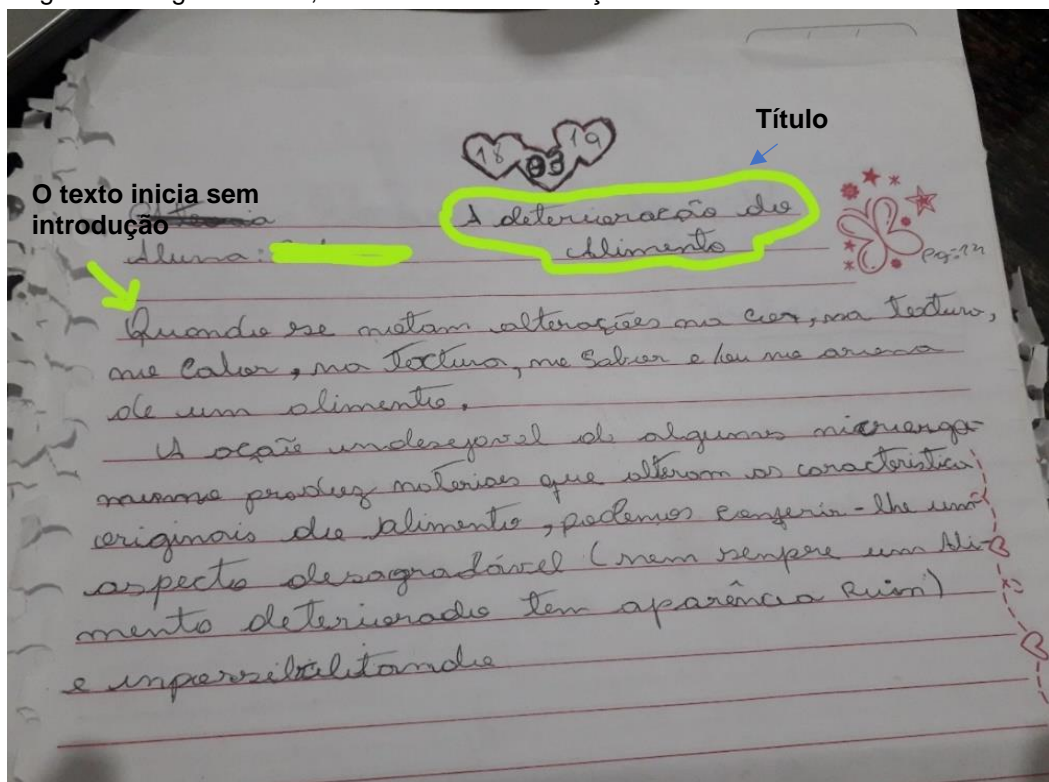 Título
18 03 19
O texto inicia sem
introdução
A deterioração do
Alimento
Aluna:
pg:
Quando se notam alterações na cor, na textura,
no Calor, na Textura, no Sabor e/ou no aroma
de um alimento.
A ação undesejavel de algumns microorga
nismno produz materiais que alteram as caracteristica
originais do alimento, podemos conferir-lhe um
aspecto desagradável (nem senpre um Ali-
mento deteriorado tem aparência Ruim)
e inpossibilitando